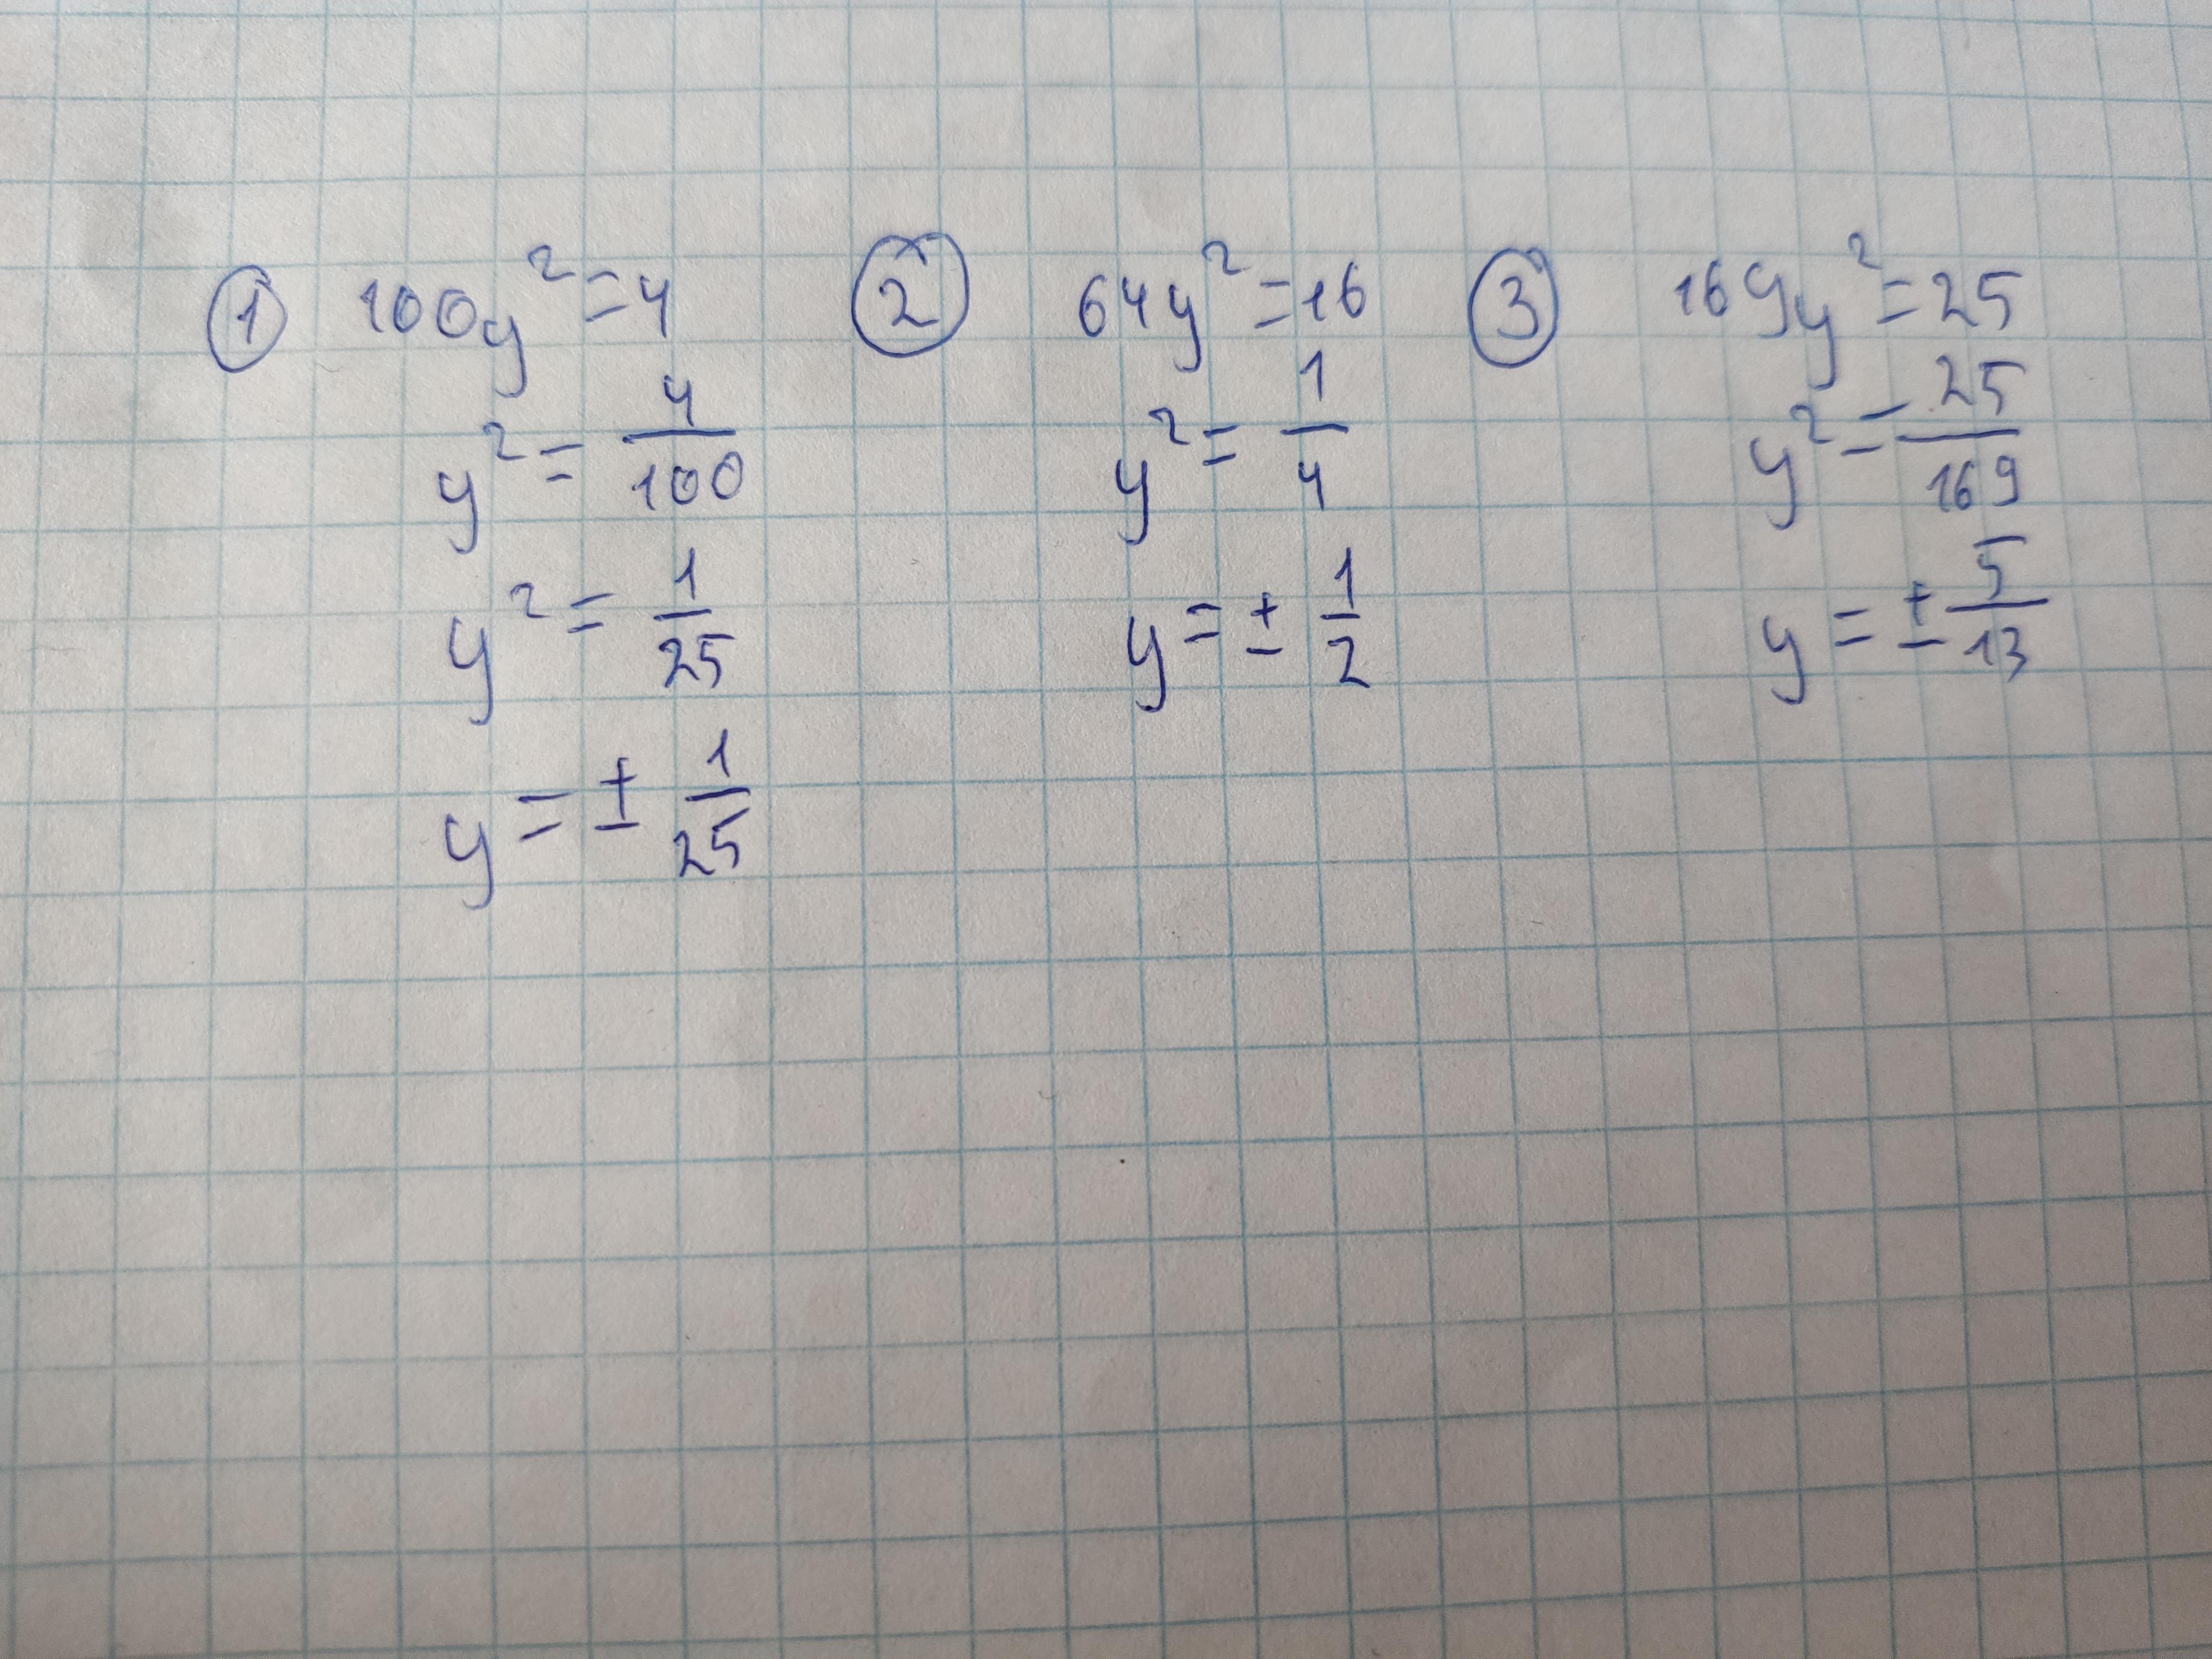 ① 100y² = 4
y² = 4/100
y² = 1/25
y = ± 1/25
② 64y² = 16
y² = 1/4
y = ± 1/2
③ 169y² = 25
y² = 25/169
y = ± 5/13